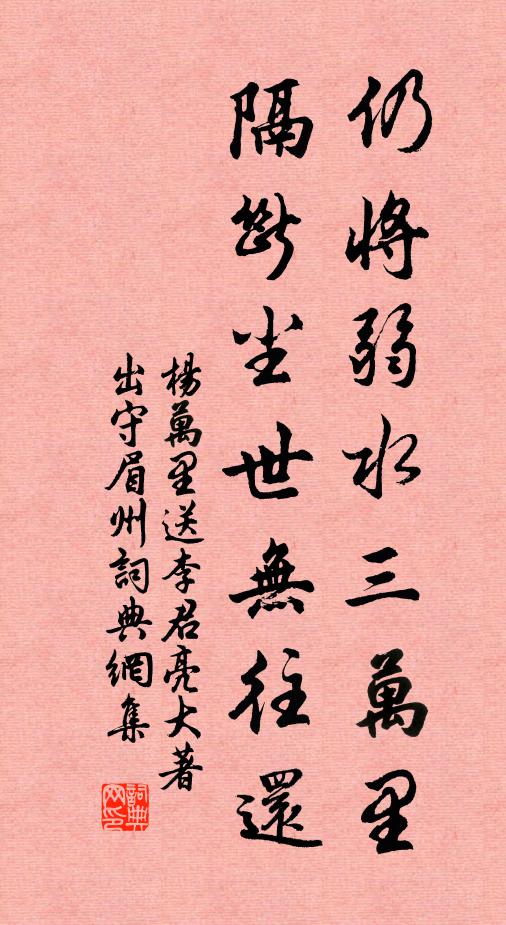 仍將弱水三萬里
隔斷尘世無往還
楊萬里送李君亮大著
出守眉州詞典網集
詞典
网印